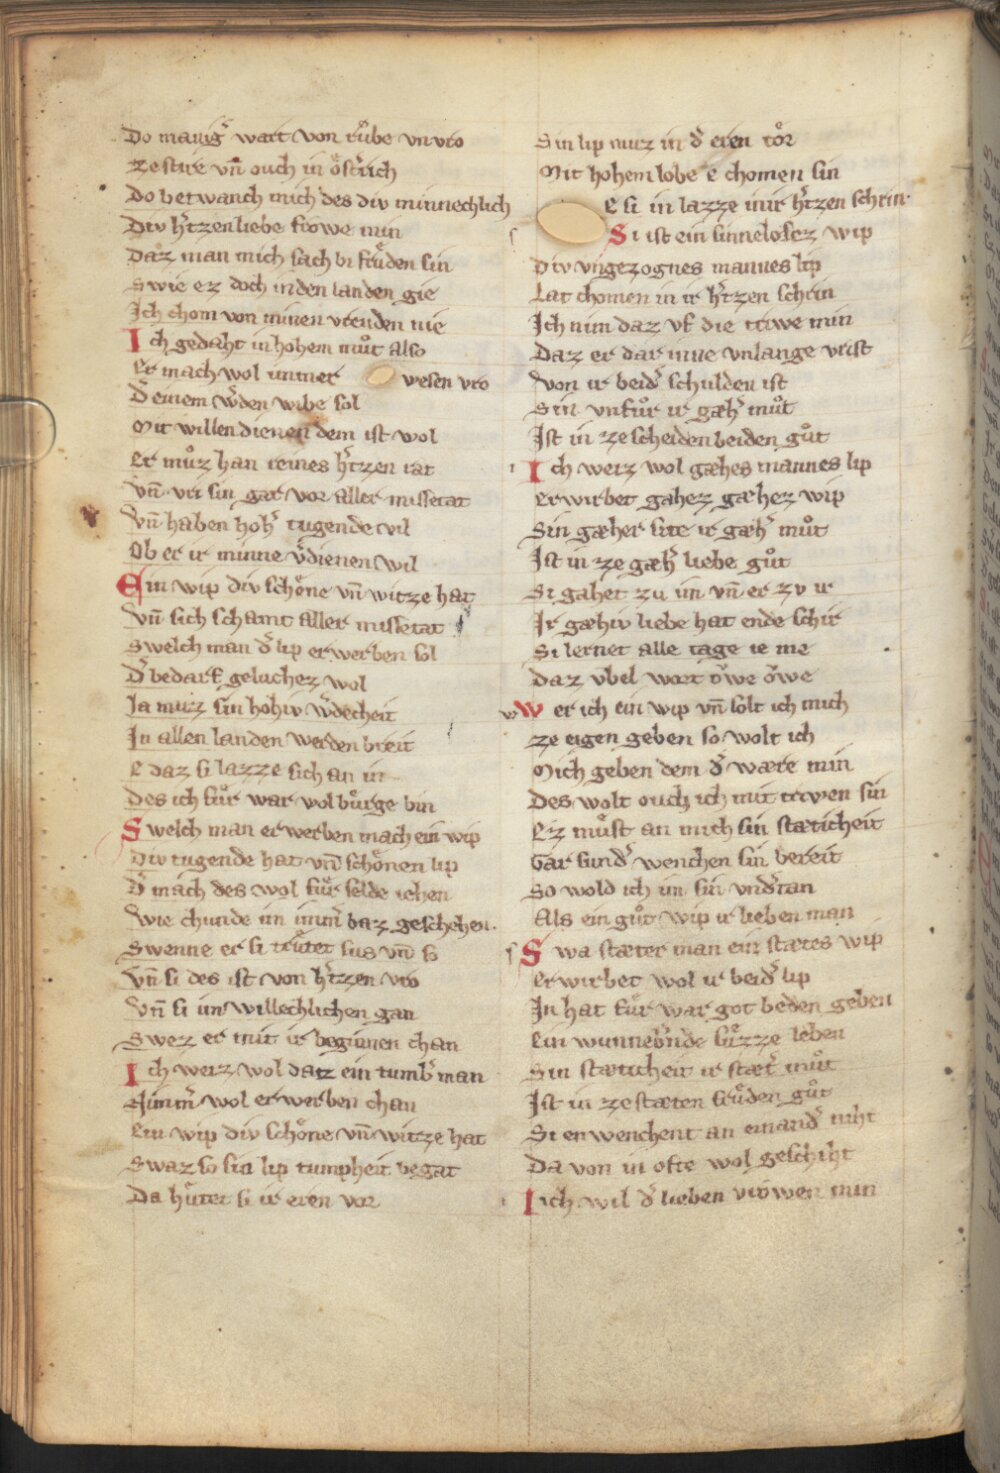 Do manig̃ wart von rŭbe vn vro
ze stire vñ ouch in ŏst̃rich
Do betwanch mich des div minnechlich
Div h̃tzenliebe frowe min
Daz man mich sach bi frŭden sin
Swie ez doch in den landen gie
Ich chom von minen vreuden nie
Ich gedaht in hohem mŭt also
Er mach wol immer wesen vro
D̃ einem w̃den wibe sol
Mit willen dienen dem ist wol
Er mŭz han reines h̃tzen rat
Vñ vri sin gar vor aller missetat
Vñ haben hoh̃ tugende vil
Ob er ir minne v̂dienen wil
Ein wip div schŏne vñ witze hat
Vñ sich schamt aller missetat
Swelch man d̃ lip erwerben sol
D̃ bedarf geluchez wol
Ja muz sin hohiv w̃decheit
In allen landen werden breit
E daz si lazze sich an in
Des ich fŭr war wol bŭrge bin
Swelch man erwerben mach ein wip
Div tugende hat vñ schŏnen lip
D̃ mach des wol fŭr selde iehen
Wie chunde im imm̃ baz geschehen.
Swenne er si trŭtet sus vñ so
Vñ si des ist von h̃tzen vro
Vñ si im willechlichen gan
Swez er mit ir beginnen chan
Ich weiz wol datz ein tumb̃ man
Nimm̃ wol erwerben chan
Ein wip div schŏne vñ witze hat
Swaz so sin lip tumpheit begat
Da hŭtet si ir eren vor
Sin lip muz in d̃ eren tŏr
Mit hohem lobe e chomen sin
E si in lazze in ir h̃tzen schrin.
Si ist ein sinnelosez wip
Div vngezognes mannes lip
Lat chomen in ir h̃tzen schrin
Ich nim daz vf die triwe min
Daz er dar inne vnlange vrist
Von ir beid̃ schulden ist
Sin vnfŭr ir gæh̃ mŭt
Ist in ze scheiden beiden gŭt
Ich weiz wol gæhes mannes lip
Erwirbet gahez gæhez wip
Sin gæher site ir gæh̃ mŭt
Ist in ze gæh̃ liebe gŭt
Si gahet zu im vñ er zv ir
Ir gæhiv liebe hat ende schir
Si lernet alle tage ie me
Daz vbel wort ŏwe ŏwe
Wer ich ein wip vñ solt ich mich
ze eigen geben so wolt ich
Mich geben dem d̃ wære min
Des wolt ouch ich mit triwen sin
Ez mŭst an mich sin stæticheit
Gar sund̃ wenchen sin bereit
So wold ich im sin vnd̃tan
Als ein gŭt wip ir lieben man
Swa stæter man ein stætes wip
Erwirbet wol ir beid̃ lip
In hat fŭr war got beden geben
Ein wunneb̃nde sŭzze leben
Sin stæticheit ir stæt̃ mŭt
Ist in ze stæten frŭden gŭt
Si enwenchent an einand̃ niht
Da von in ofte wol geschiht
Iich wil d̃ lieben vrowen min